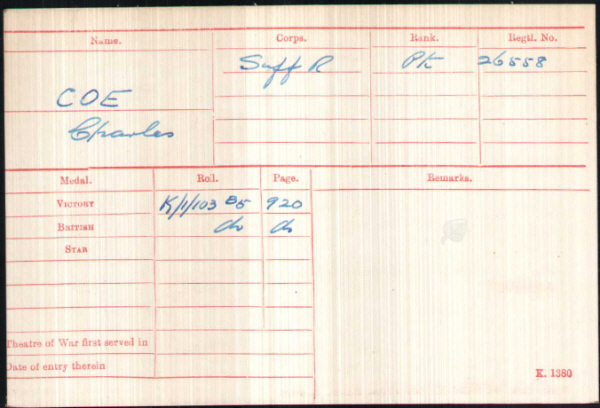 Name. Corps. Rank. Regtl. No.
Suff R Pte 26558
COE
Charles
Medal. Roll. Page. Remarks.
VICTORY K/1/103 B5 920
BRITISH do do
STAR
Theatre of War first served in
Date of entry therein
K. 1380